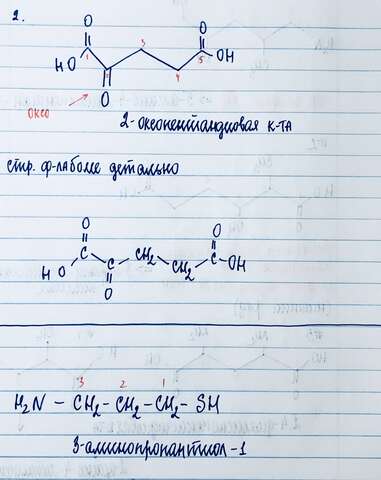 2.
O
O
HO 1 2 3 4 5 OH
O
оксо
2-оксопентандиовая к-та
стр. ф-ла более детально
O
O
C C CH2 CH2 C
H O OH
O
3 2 1
H2N – CH2 – CH2 – CH2 – SH
3-аминопропантиол-1